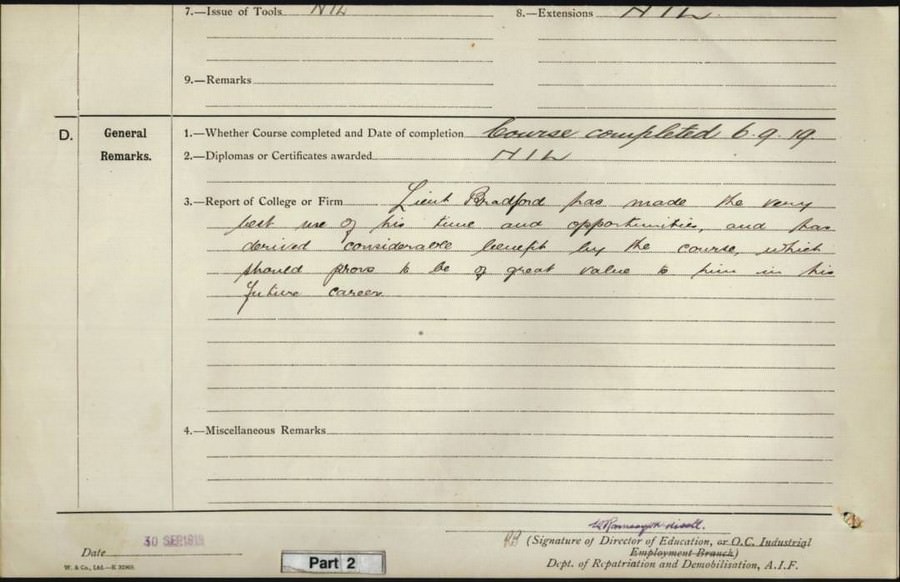 7.—Issue of Tools NIL
8.—Extensions NIL.
9.—Remarks
D. General Remarks.
1.—Whether Course completed and Date of completion Course completed 6.9.19.
2.—Diplomas or Certificates awarded NIL
3.—Report of College or Firm Lieut Bradford has made the very
best use of his time and opportunities, and has
derived considerable benefit by the course, which
should prove to be of great value to him in his
future career.
4.—Miscellaneous Remarks
(Signature of Director of Education, or O.C. Industrial
Employment Branch)
Date 30 SEP 1919
Dept. of Repatriation and Demobilisation, A.I.F.
Part 2